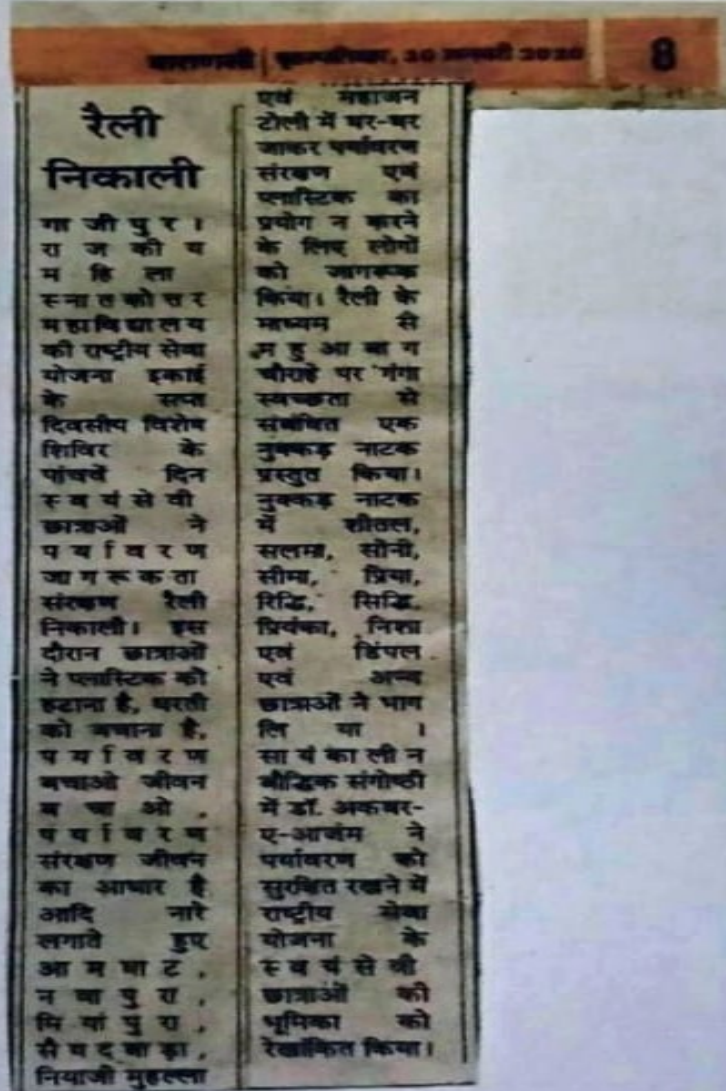 वाराणसी | बृहस्पतिवार, 30 जनवरी 2020
8
रैली
निकाली
गाजीपुर।
राजकीय
महिला
स्नातकोत्तर
महाविद्यालय
की राष्ट्रीय सेवा
योजना इकाई
के सप्त
दिवसीय विशेष
शिविर के
पांचवें दिन
स्वयंसेवी
छात्राओं ने
पर्यावरण
जागरूकता
संरक्षण रैली
निकाली। इस
दौरान छात्राओं
ने प्लास्टिक को
हटाना है, धरती
को बचाना है,
पर्यावरण
बचाओ जीवन
बचाओ,
पर्यावरण
संरक्षण जीवन
का आधार है
आदि नारे
लगाते हुए
आमघाट,
नवापुरा,
मियांपुरा,
सैयदबाड़ा,
नियाजी मुहल्ला
एवं महाजन
टोली में घर-घर
जाकर पर्यावरण
संरक्षण एवं
प्लास्टिक का
प्रयोग न करने
के लिए लोगों
को जागरूक
किया। रैली के
माध्यम से
महुआबाग
चौराहे पर गंगा
स्वच्छता से
संबंधित एक
नुक्कड़ नाटक
प्रस्तुत किया।
नुक्कड़ नाटक
में शीतल,
सलमा, सोनी,
सीमा, प्रिया,
रिद्धि, सिद्धि,
प्रियंका, निशा
एवं डिंपल
एवं अन्य
छात्राओं ने भाग
लिया।
सायंकालीन
बौद्धिक संगोष्ठी
में डॉ. अकबर-
ए-आजम ने
पर्यावरण को
सुरक्षित रखने में
राष्ट्रीय सेवा
योजना के
स्वयंसेवी
छात्राओं की
भूमिका को
रेखांकित किया।